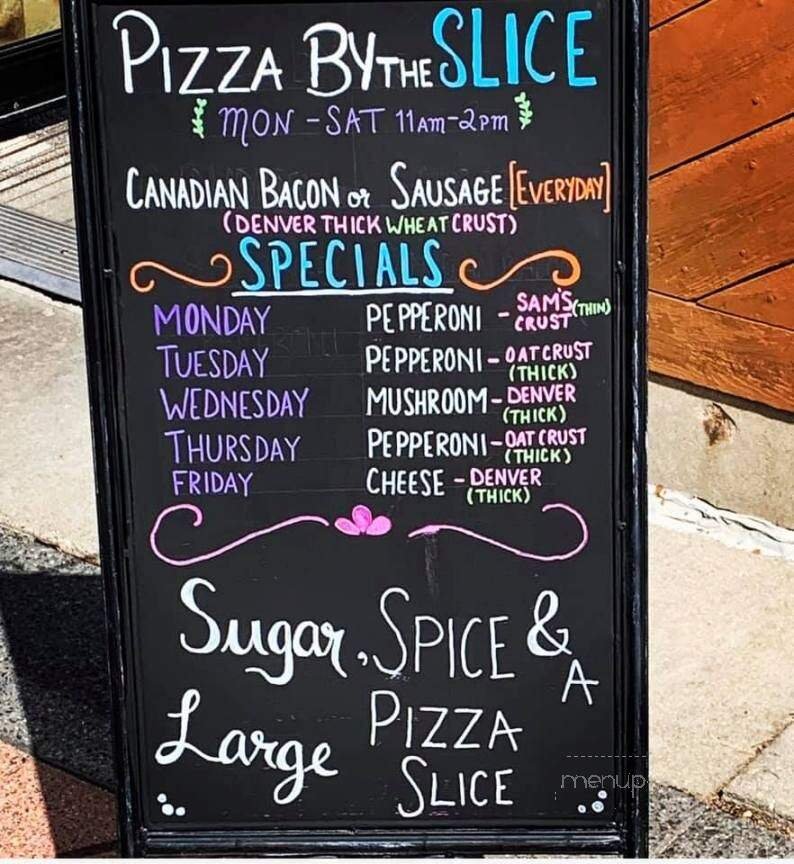 PIZZA BY THE SLICE
MON - SAT 11AM-2PM
CANADIAN BACON or SAUSAGE [EVERYDAY]
(DENVER THICK WHEAT CRUST)
SPECIALS
MONDAY PEPPERONI - SAM'S CRUST (THIN)
TUESDAY PEPPERONI - OAT CRUST (THICK)
WEDNESDAY MUSHROOM - DENVER (THICK)
THURSDAY PEPPERONI - OAT CRUST (THICK)
FRIDAY CHEESE - DENVER (THICK)
Sugar, SPICE & A
Large PIZZA
SLICE
menup